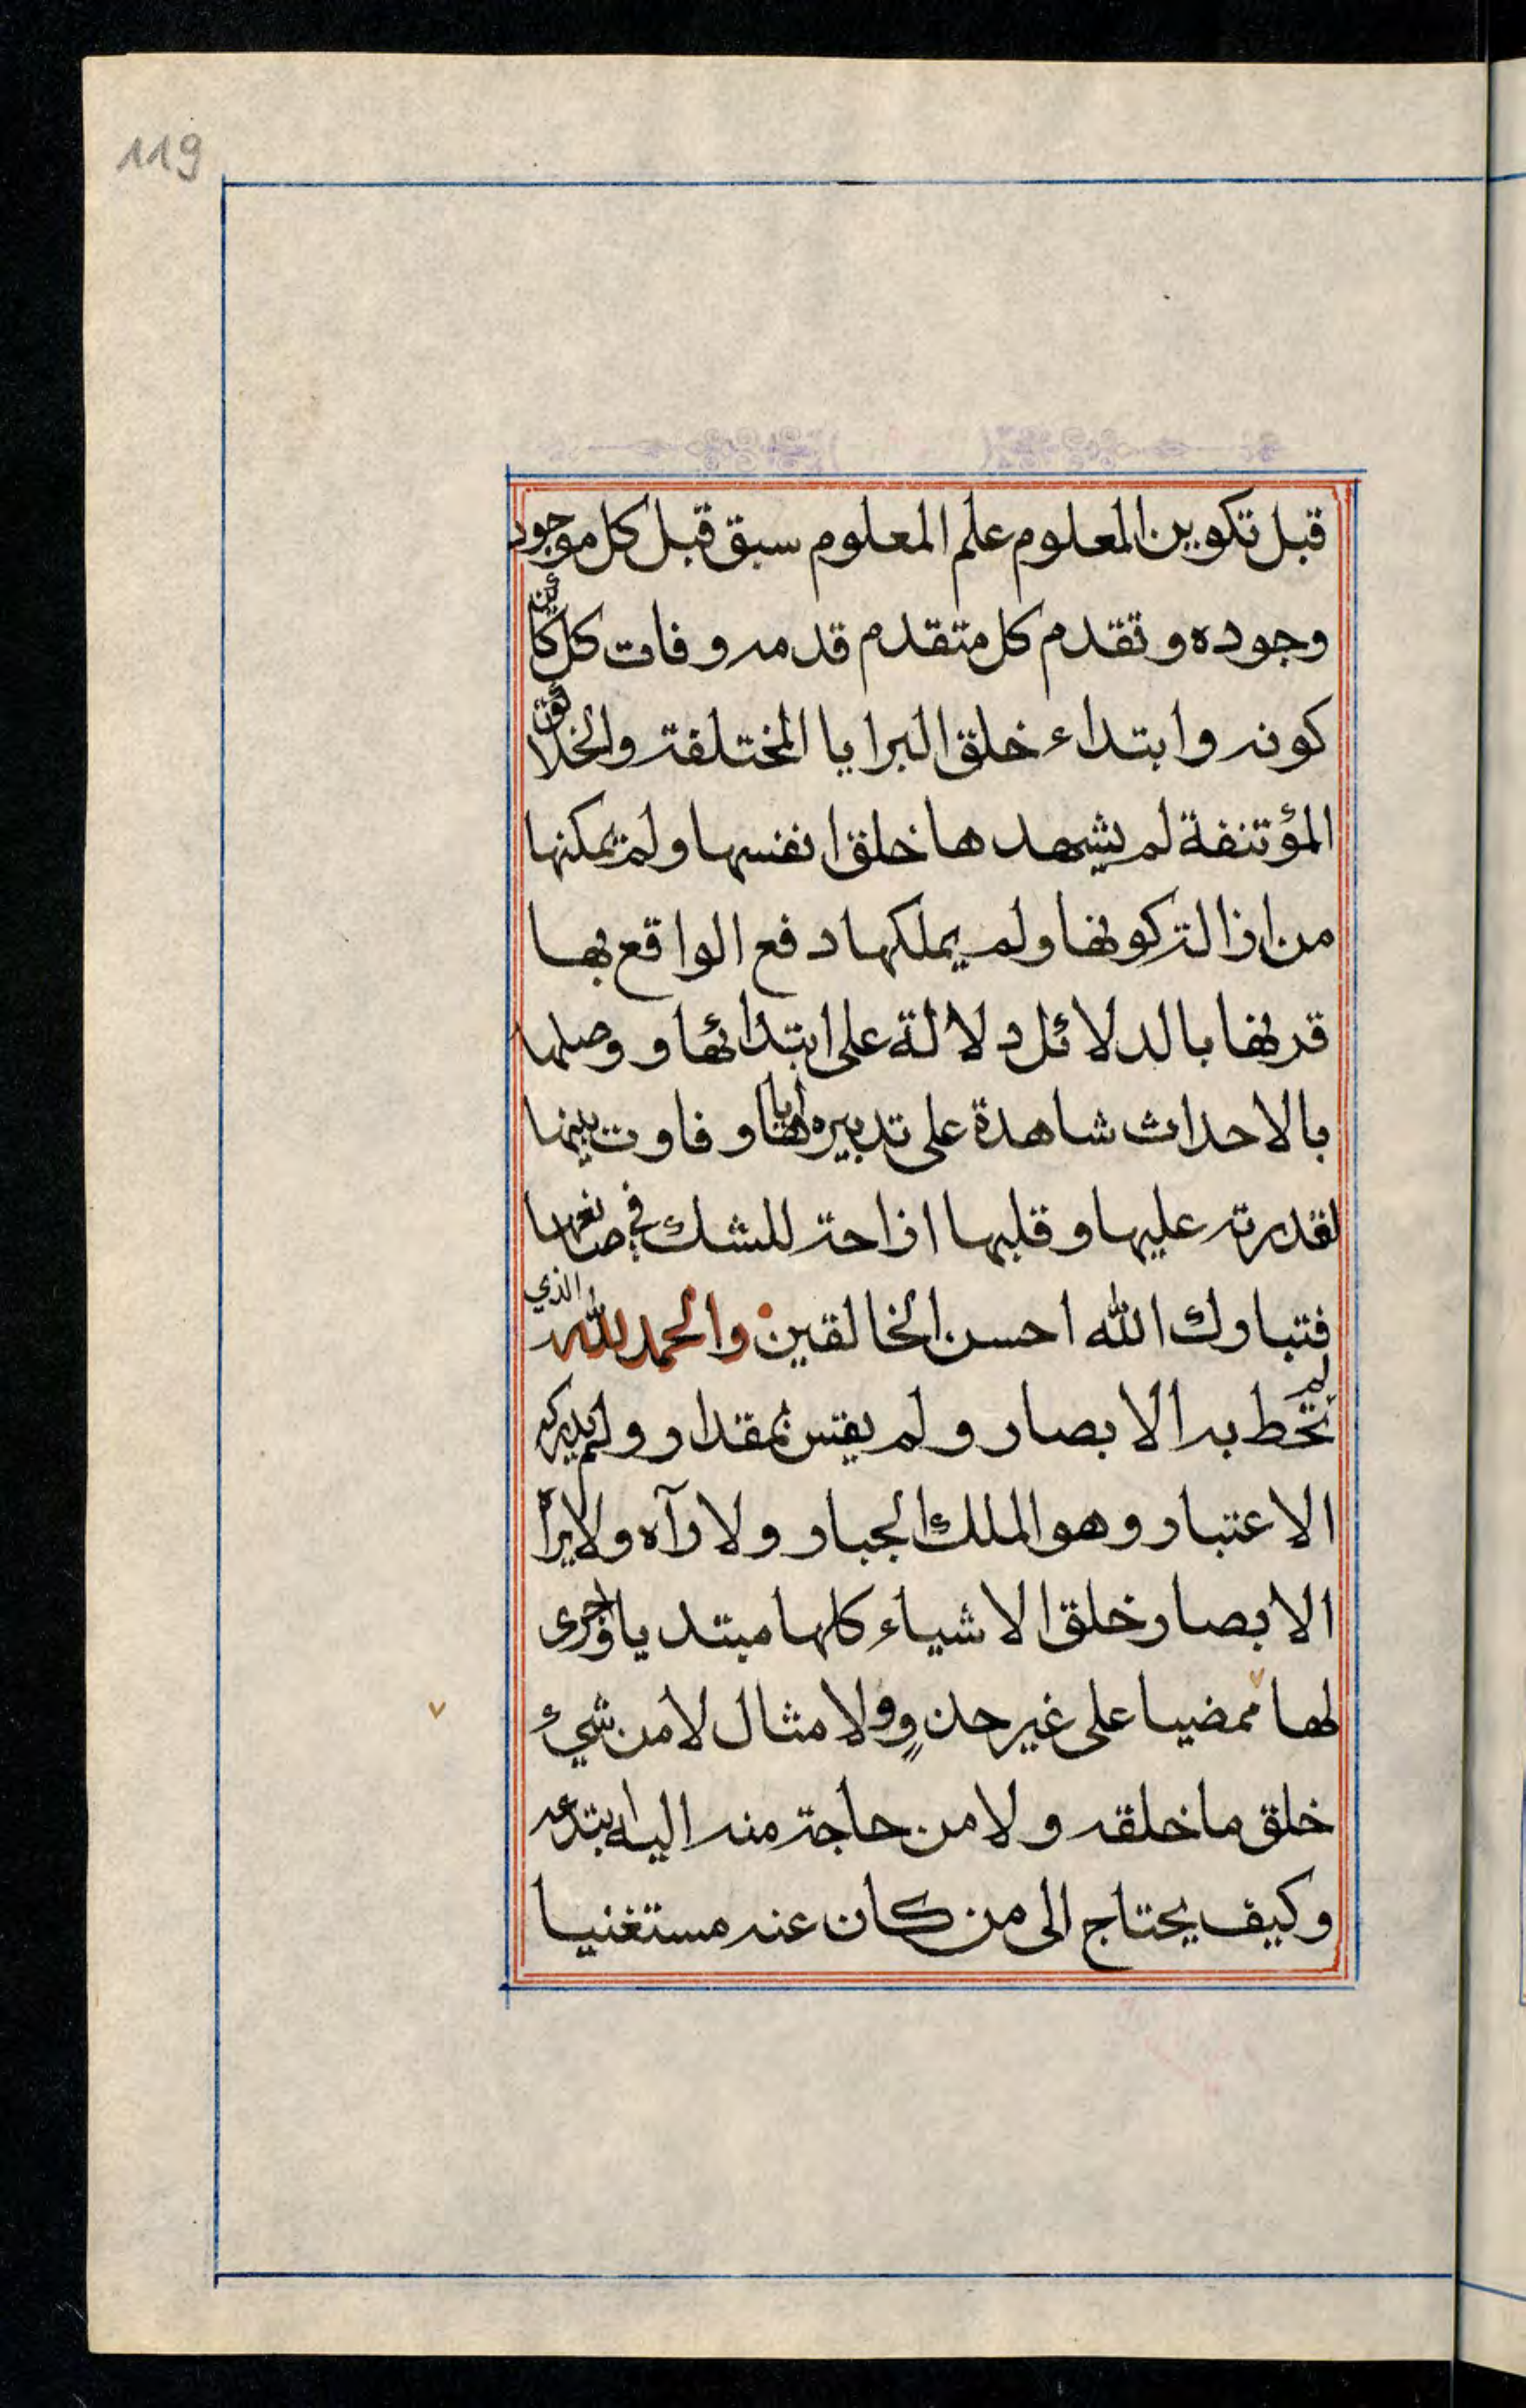 119
قبل تكوين المعلوم علم المعلوم سبق قبل كل موجود
وجوده و تقدم كل متقدم قدمه و فات كل كائن
كونه و ابتداء خلق البرايا المختلفة والخلائق
المؤتنفة لم يشهدها خلق انفسها و لم يمكنها
من ازالة كونها و لم يملكها دفع الواقع بها
قرنها بالدلائل دلالة على ابتدائها و وصلها
بالاحداث شاهدة على تدبيره اياها و فاوت بينها
لقدرته عليها و قلبها ازاحة للشك في صانعها
فتبارك الله احسن الخالقين والحمد لله الذي
لم تحط به الابصار و لم يقس بمقدار و لم يدركه
الاعتبار و هو الملك الجبار و لا رآه و لا يراه
الابصار خلق الاشياء كلها مبتديا و اجرى
لها ممضيا على غير حذوٍ و لا مثال لا من شيء
خلق ما خلقه و لا من حاجة منه اليه ابتدعه
و كيف يحتاج الى من كان عنه مستغنيا